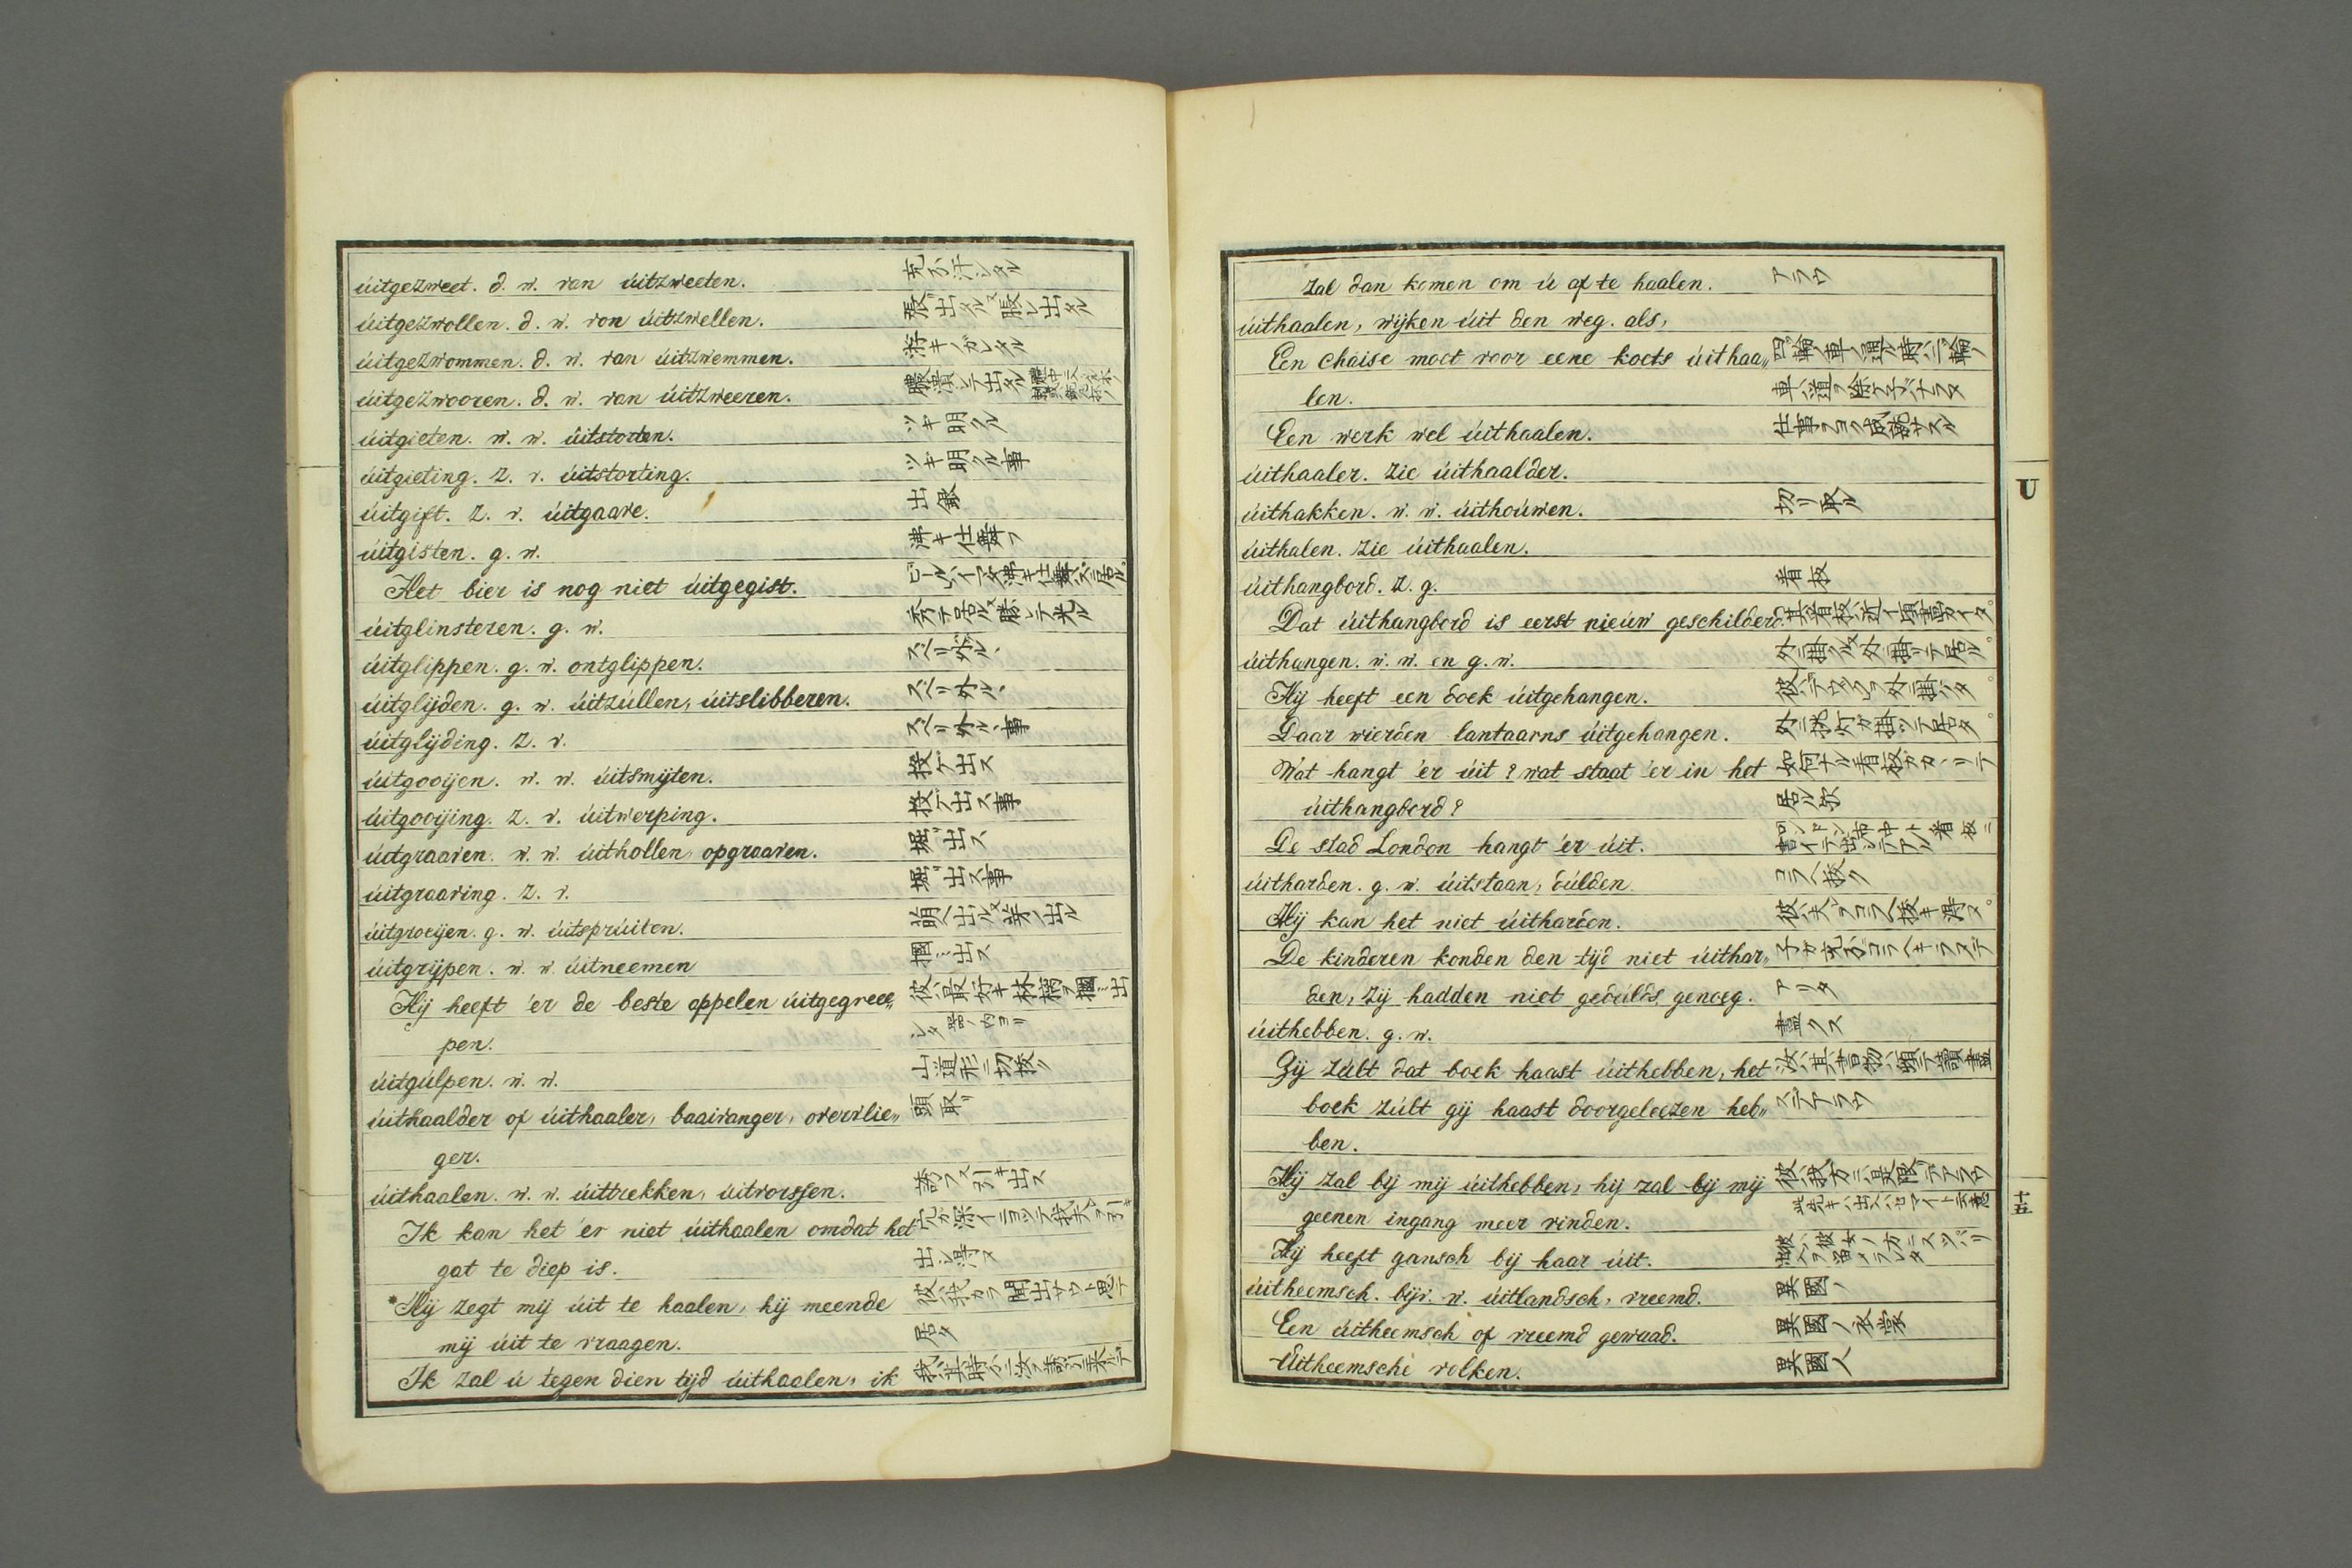 úitgezweet. d. w. van úitzweeten. 充分汗シタル
úitgezwollen. d. w. van úitzwellen.
úitgezwommen. d. w. van úitzwemmen.
úitgezwooren. d. w. van úitzweeren.
úitgieten. w. w. úitstorten. ツギ明クル
úitgieting. z. v. úitstorting. ツギ明クル事
úitgift. z. v. úitgaave. 出銀
úitgisten. g. w.沸キ仕舞フ
Het bier is nog niet úitgegist.
úitglinsteren. g. w.
úitglippen. g. w. ontglippen. スベリ外ルヽ
úitglijden. g. w. úitzúllen, úitslibberen. スベリ外ルヽ
úitglijding. z. v. スベリ外ルヽ事
úitgooijen. w. w. úitsmijten. 投ゲ出ス
úitgooijing. z. v. úitwerping. 投ゲ出ス事
úitgraaven. w. w. úithollen, opgraaven. 堀出ス
úitgraaving. z. v. 堀出ス事
úitgroeijen. g. w. úitsprúiten.
úitgrijpen. w. w. úitneemen 摑ミ出ス
Hij heeft 'er de beste appelen úitgegree„ 彼ハ最好キ林檎ヲ摑ミ出
pen.
úitgúlpen. w. w. 山道形ニ切抜ク
úithaalder of úithaaler, baaivanger, overvlie„ 頭取
ger.
úithaalen. w. w. úittrekken, úitvorssen.
Ik kan het 'er niet úithaalen omdat het
gat te diep is. 出シ得ヌ
*Hij zegt mij úit te haalen, hij meende
mij úit te vraagen. 居タ
Ik zal ú tegen dien tijd úithaalen, ik
zal dan komen om ú af te haalen. アラウ
úithaalen, wijken úit den weg. als,
Een chaise moet voor eene koets úithaa„ 四輪ノ車ノ通ル時ハ二輪ノ
len.
Een werk wel úithaalen. 仕事ヲヨク成就サスル
úithaaler. zie úithaalder.
úithakken. w. w. úithoúwen. 切リ取ル
úithalen. zie úithaalen.
úithangbord. z. g. 看板
Dat úithangbord is eerst nieúw geschilderd.
úithangen. w. w. en g. w. 外ニ掛クル又外ニ掛ツテ居ル
Hij heeft een doek úitgehangen.
Daar wierden lantaarns úitgehangen.
Wat hangt 'er úit? wat staat 'er in het 如何ナル看板ガカヽリテ
úithangbord? 居ル歟
De stad London hangt 'er úit.
úitharden. g. w. úitstaan, dúlden. コラヘ抜ク
Hij kan het niet úitharden. 彼ハ夫ヲコラヘ抜キ得ヌ
De kinderen konden den tijd niet úithar„
den, zij hadden niet gedúlds genoeg. アリタ
úithebben. g. w. 盡クス
Gij zúlt dat boek haast úithebben, het
boek zúlt gij haast doorgeleezen heb„ ステアラウ
ben.
Hij zal bij mij úithebben, hij zal bij mij
geenen ingang meer vinden.
Hij heeft gansch bij haar úit.
úitheemsch. bijv. w. úitlandsch, vreemd. 異國ノ
Een úitheemsch of vreemd gewaad. 異國ノ衣裳
Uitheemsche volken. 異國人
U
十五